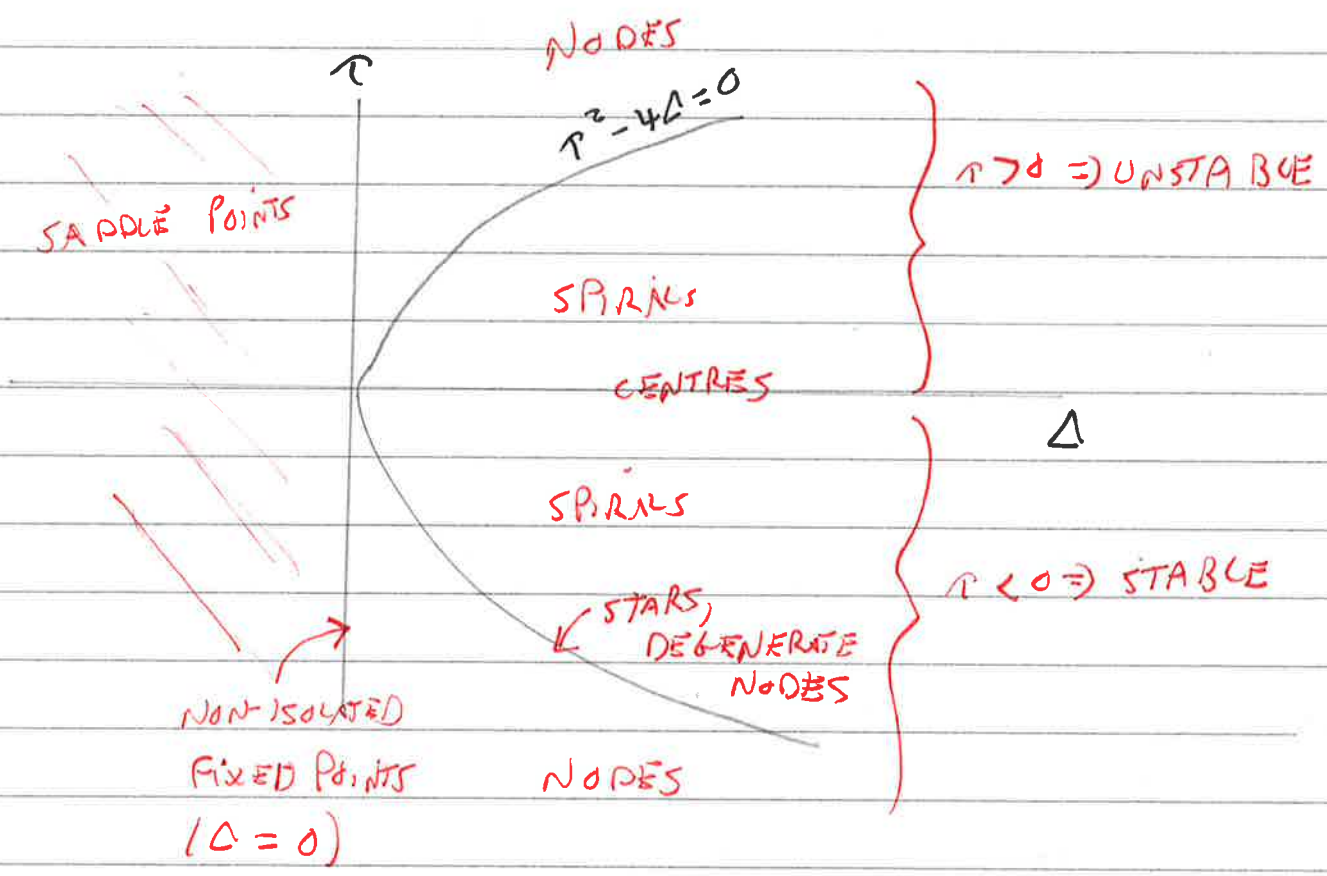 NODES
τ
τ² - 4Δ = 0
τ > 0 ⇒ UNSTABLE
SADDLE POINTS
SPIRALS
CENTRES
Δ
SPIRALS
τ < 0 ⇒ STABLE
STARS,
DEGENERATE
NODES
NON-ISOLATED
FIXED POINTS
(Δ = 0)
NODES